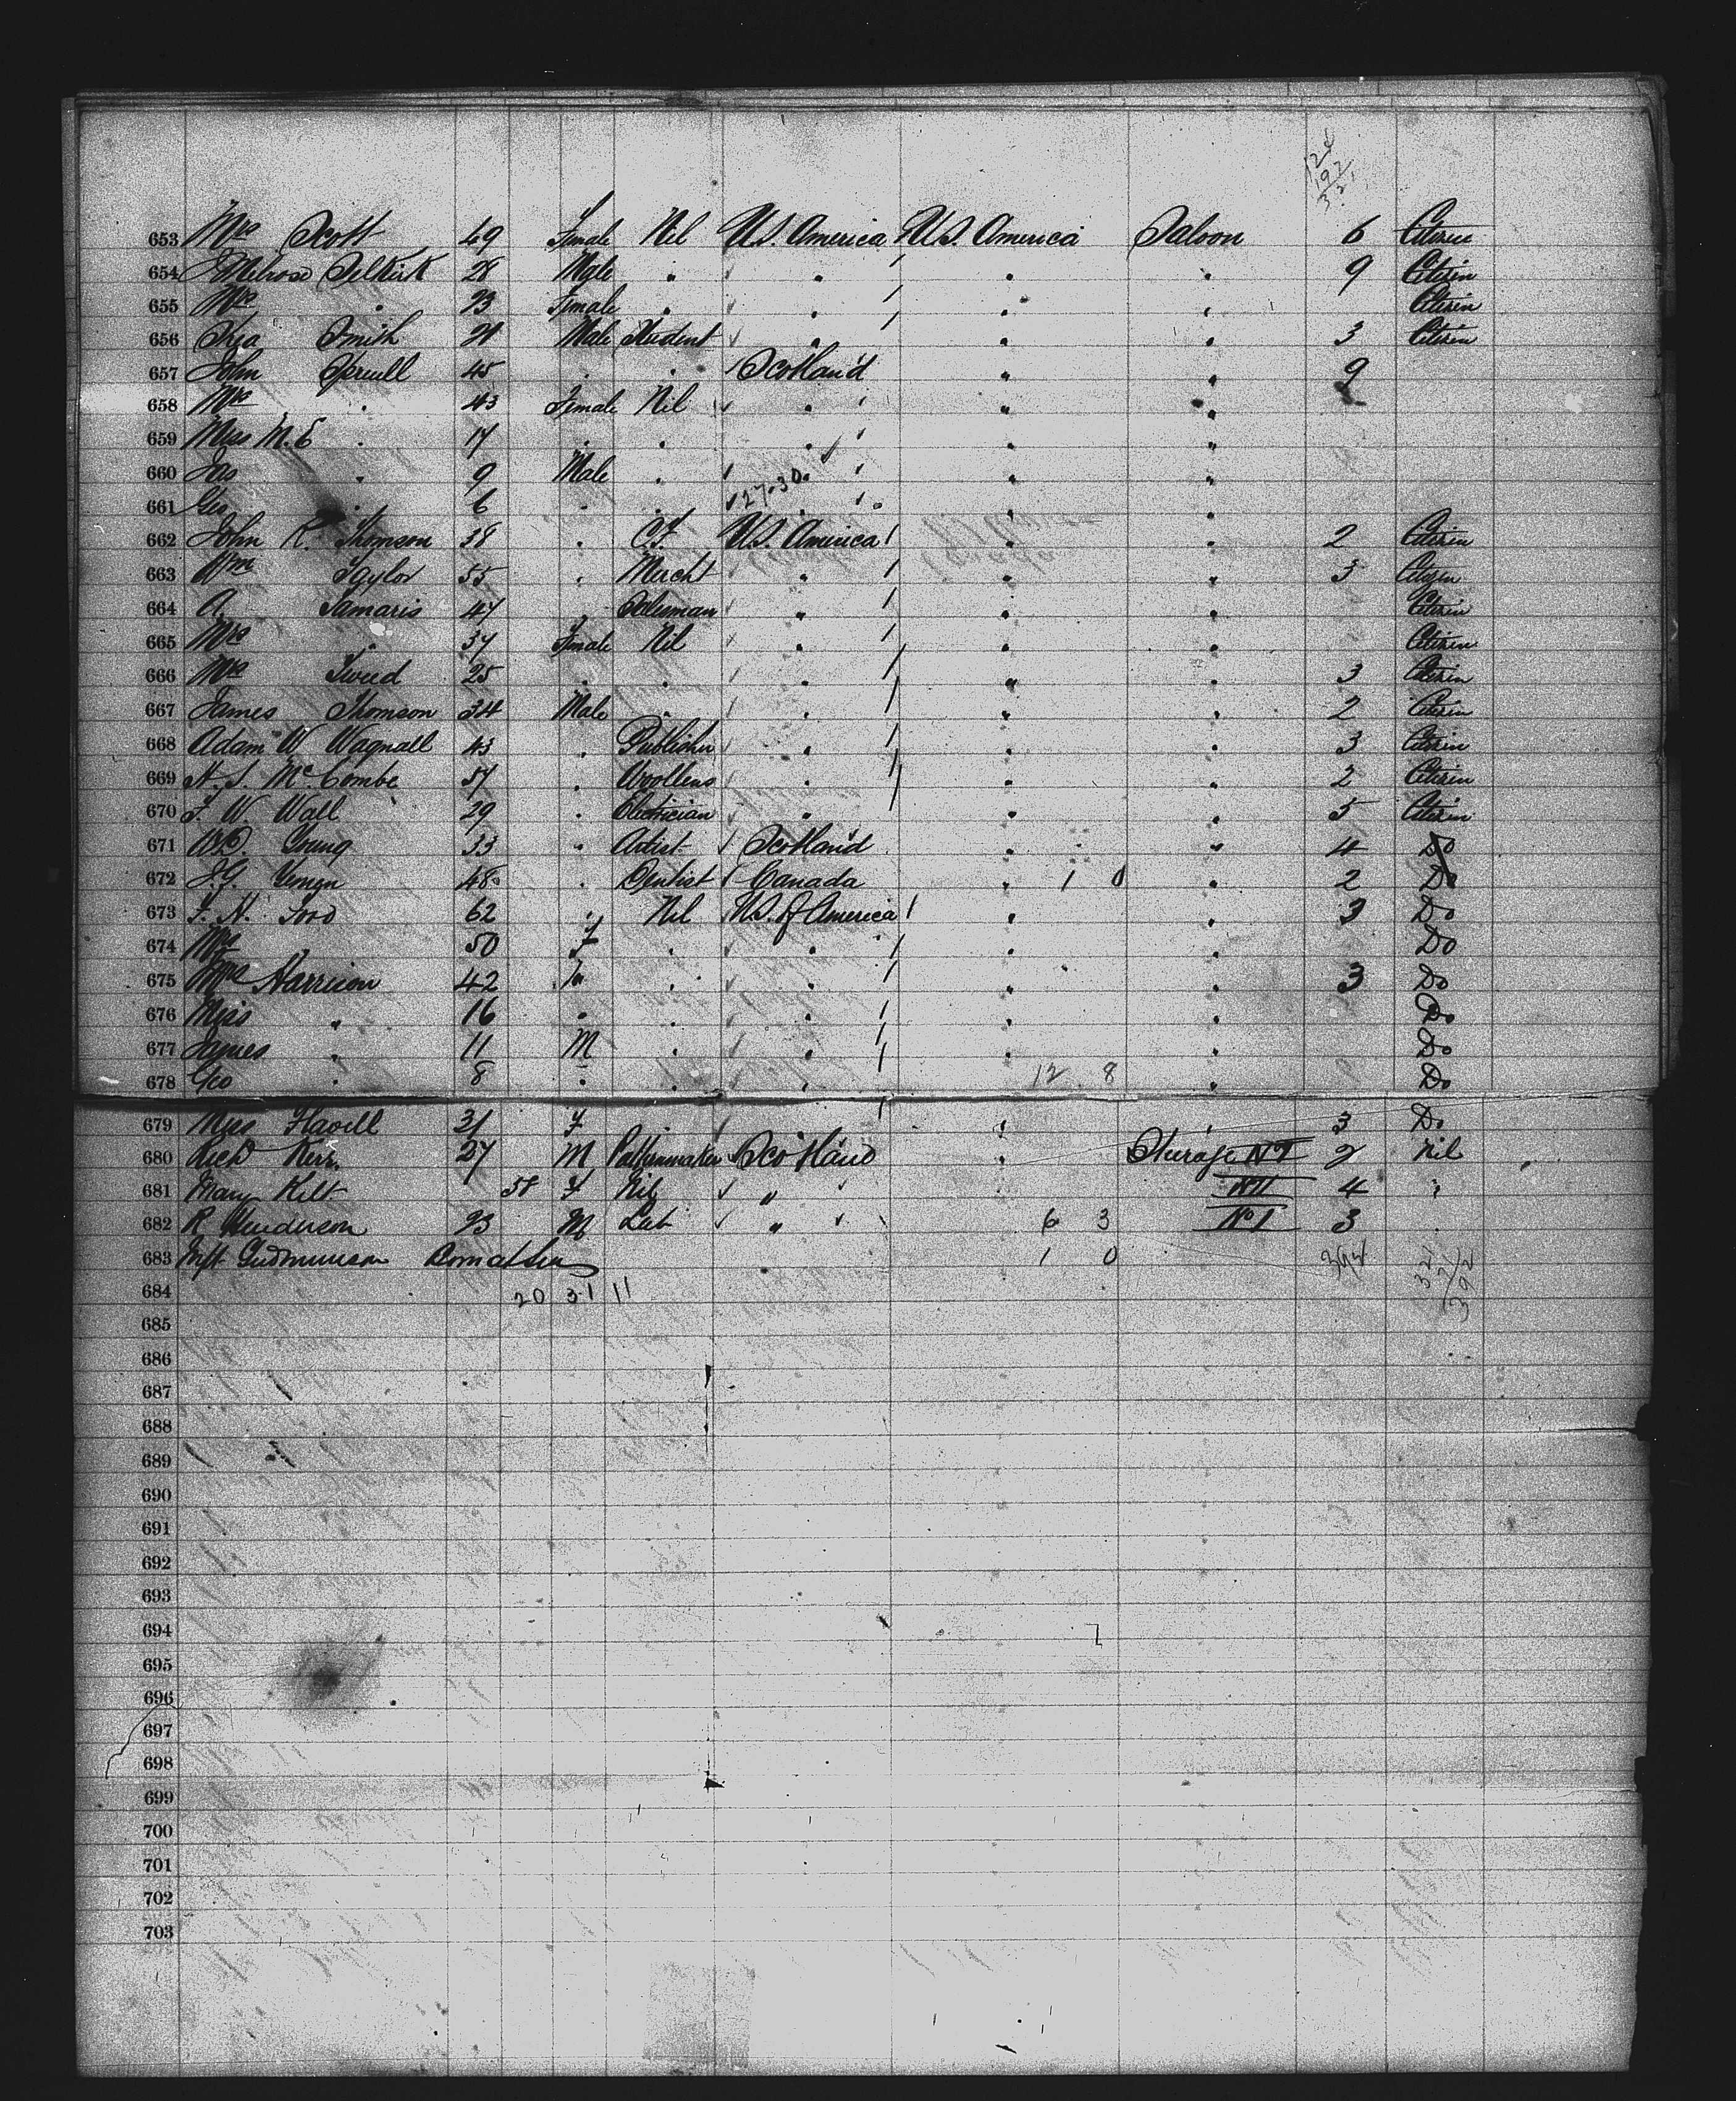 124
192
321
653 Mrs Scott 49 Female Nil U.S. America U.S. America Saloon 6 Citizen
654 Melrose Selkirk 28 Male " " " " 9 Citizen
655 Mrs " 23 Female " " " " Citizen
656 Smith 21 Male Student " " " 3 Citizen
657 John 45 " " Scotland " " 9
658 Mrs " 43 Female Nil " " "
659 Miss M. E " 17 " " " " "
660 Jas " 9 Male " " " "
661 Geo " 6 " " 27.30. " "
662 John R. Thomson 38 " U.S. America " " 2 Citizen
663 Wm Taylor 55 " Mercht " " " 3 Citizen
664 A. Tamaris 47 " Salesman " " " Citizen
665 Mrs " 37 Female Nil " " " Citizen
666 Mrs Tweed 25 " " " " " 3 Citizen
667 James Thomson 34 Male " " " " 2 Citizen
668 Adam W Wagnall 43 " Publisher " " " 3 Citizen
669 H. S. McCombe 57 " Woollens " " " 2 Citizen
670 T. W. Wall 29 " Electrician " " " 5 Citizen
671 Young 33 " Artist Scotland " " 4 Do
672 J.G. 48 " Dentist Canada " 1 0 " 2 Do
673 T. H. 62 " Nil U.S. of America " " 3 Do
674 Mrs " 50 F " " " " Do
675 Mrs Harrison 42 " " " " 3 Do
676 Miss " 16 " " " " " Do
677 James " 11 M " " " " Do
678 Geo " 8 " " " 12 8 " Do
679 Miss Flavell 31 F " " 3 Do
680 Richd Kerr 27 M Patternmaker Scotland " Steerage No 1 2 Nil
681 Mary Kelt 58 F Nil " " No 1 4 "
682 R Henderson 23 M Lab " 6 3 No 1 3
683 Inft Gudmunson Born at Sea 1 0 392
321
71
392
684 20 31 11
685
686
687
688
689
690
691
692
693
694
695
696
697
698
699
700
701
702
703